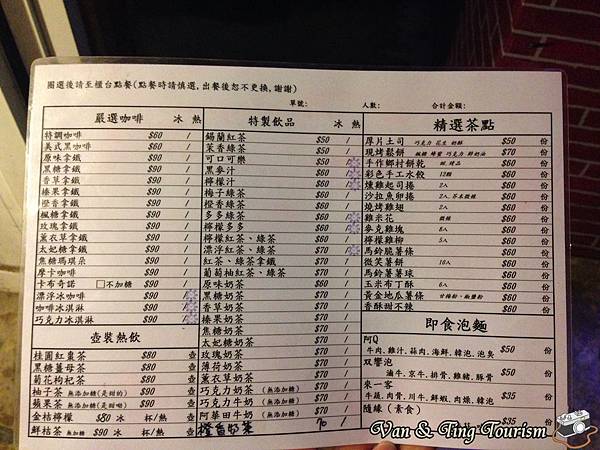 圈選後請至櫃台點餐(點餐時請慎選,出餐後恕不更換,謝謝)
單號: 人數: 合計金額:
嚴選咖啡 冰 熱
特調咖啡 $60 /
美式黑咖啡 $60 /
原味拿鐵 $90 /
黑糖拿鐵 $90 /
香草拿鐵 $90 /
榛果拿鐵 $90 /
橙香拿鐵 $90 /
楓糖拿鐵 $90 /
玫瑰拿鐵 $90 /
薰衣草拿鐵 $90 /
太妃糖拿鐵 $90 /
焦糖瑪琪朵 $90 /
摩卡咖啡 $90 /
卡布奇諾 □不加糖 $90 /
漂浮冰咖啡 $90
咖啡冰淇淋 $90
巧克力冰淇淋 $90
壺裝熱飲
桂圓紅棗茶 $80 壺
黑糖薑母茶 $80 壺
菊花枸杞茶 $80 壺
柚子茶 無添加糖(是甜的) $90 壺
蘋果茶 無添加糖(是甜呦) $90 壺
金桔檸檬 $80 冰 杯/熱 壺
鮮桔茶 無加糖 $90 冰 杯/熱 壺
特製飲品 冰 熱
錫蘭紅茶 $50 /
茉香綠茶 $50 /
可口可樂 $50
黑麥汁 $60
檸檬汁 $60
梅子綠茶 $60
橙香綠茶 $60
多多綠茶 $60
檸檬多多 $60
檸檬紅茶、綠茶 $60
漂浮紅茶、綠茶 $70
紅茶、綠茶拿鐵 $70 /
葡萄柚紅茶、綠茶 $70
原味奶茶 $60 /
黑糖奶茶 $70 /
香草奶茶 $70 /
榛果奶茶 $70 /
焦糖奶茶 $70 /
太妃糖奶茶 $70 /
玫瑰奶茶 $70 /
薄荷奶茶 $70 /
薰衣草奶茶 $70 /
巧克力奶茶 (無添加糖) $70 /
巧克力牛奶 (無添加糖) $70 /
阿華田牛奶 (無添加糖) $70 /
橙香奶茶 70 /
精選茶點
厚片土司 巧克力 花生 奶酥 $50 份
現烤鬆餅 楓糖 蜂蜜 巧克力 鮮奶油 $70 份
手作鄉村餅乾 $60 份
彩色手工水餃 12顆 $60 份
燻雞起司捲 2入 $60 份
沙拉魚卵捲 2入 $60 份
燒烤雞翅 2入 $60 份
雞米花 $60 份
麥克雞塊 8入 $60 份
檸檬雞柳 5入 $60 份
馬鈴脆薯條 $60 份
微笑薯餅 10入 $60 份
馬鈴薯薯球 $60 份
玉米布丁酥 6入 $60 份
黃金地瓜薯條 甘梅粉、椒鹽粉 $60 份
香酥甜不辣 $60 份
即食泡麵
阿Q
牛肉,雞汁,蒜肉,海鮮,韓泡,泡臭 $50 份
双響泡
滷牛,京牛,排骨,雞豬,豚骨 $50 份
來一客
牛蔬,肉骨,川牛,鮮蝦,肉燥,韓泡 $35 份
隨緣(素食) $35 份
Van & Ting Tourism